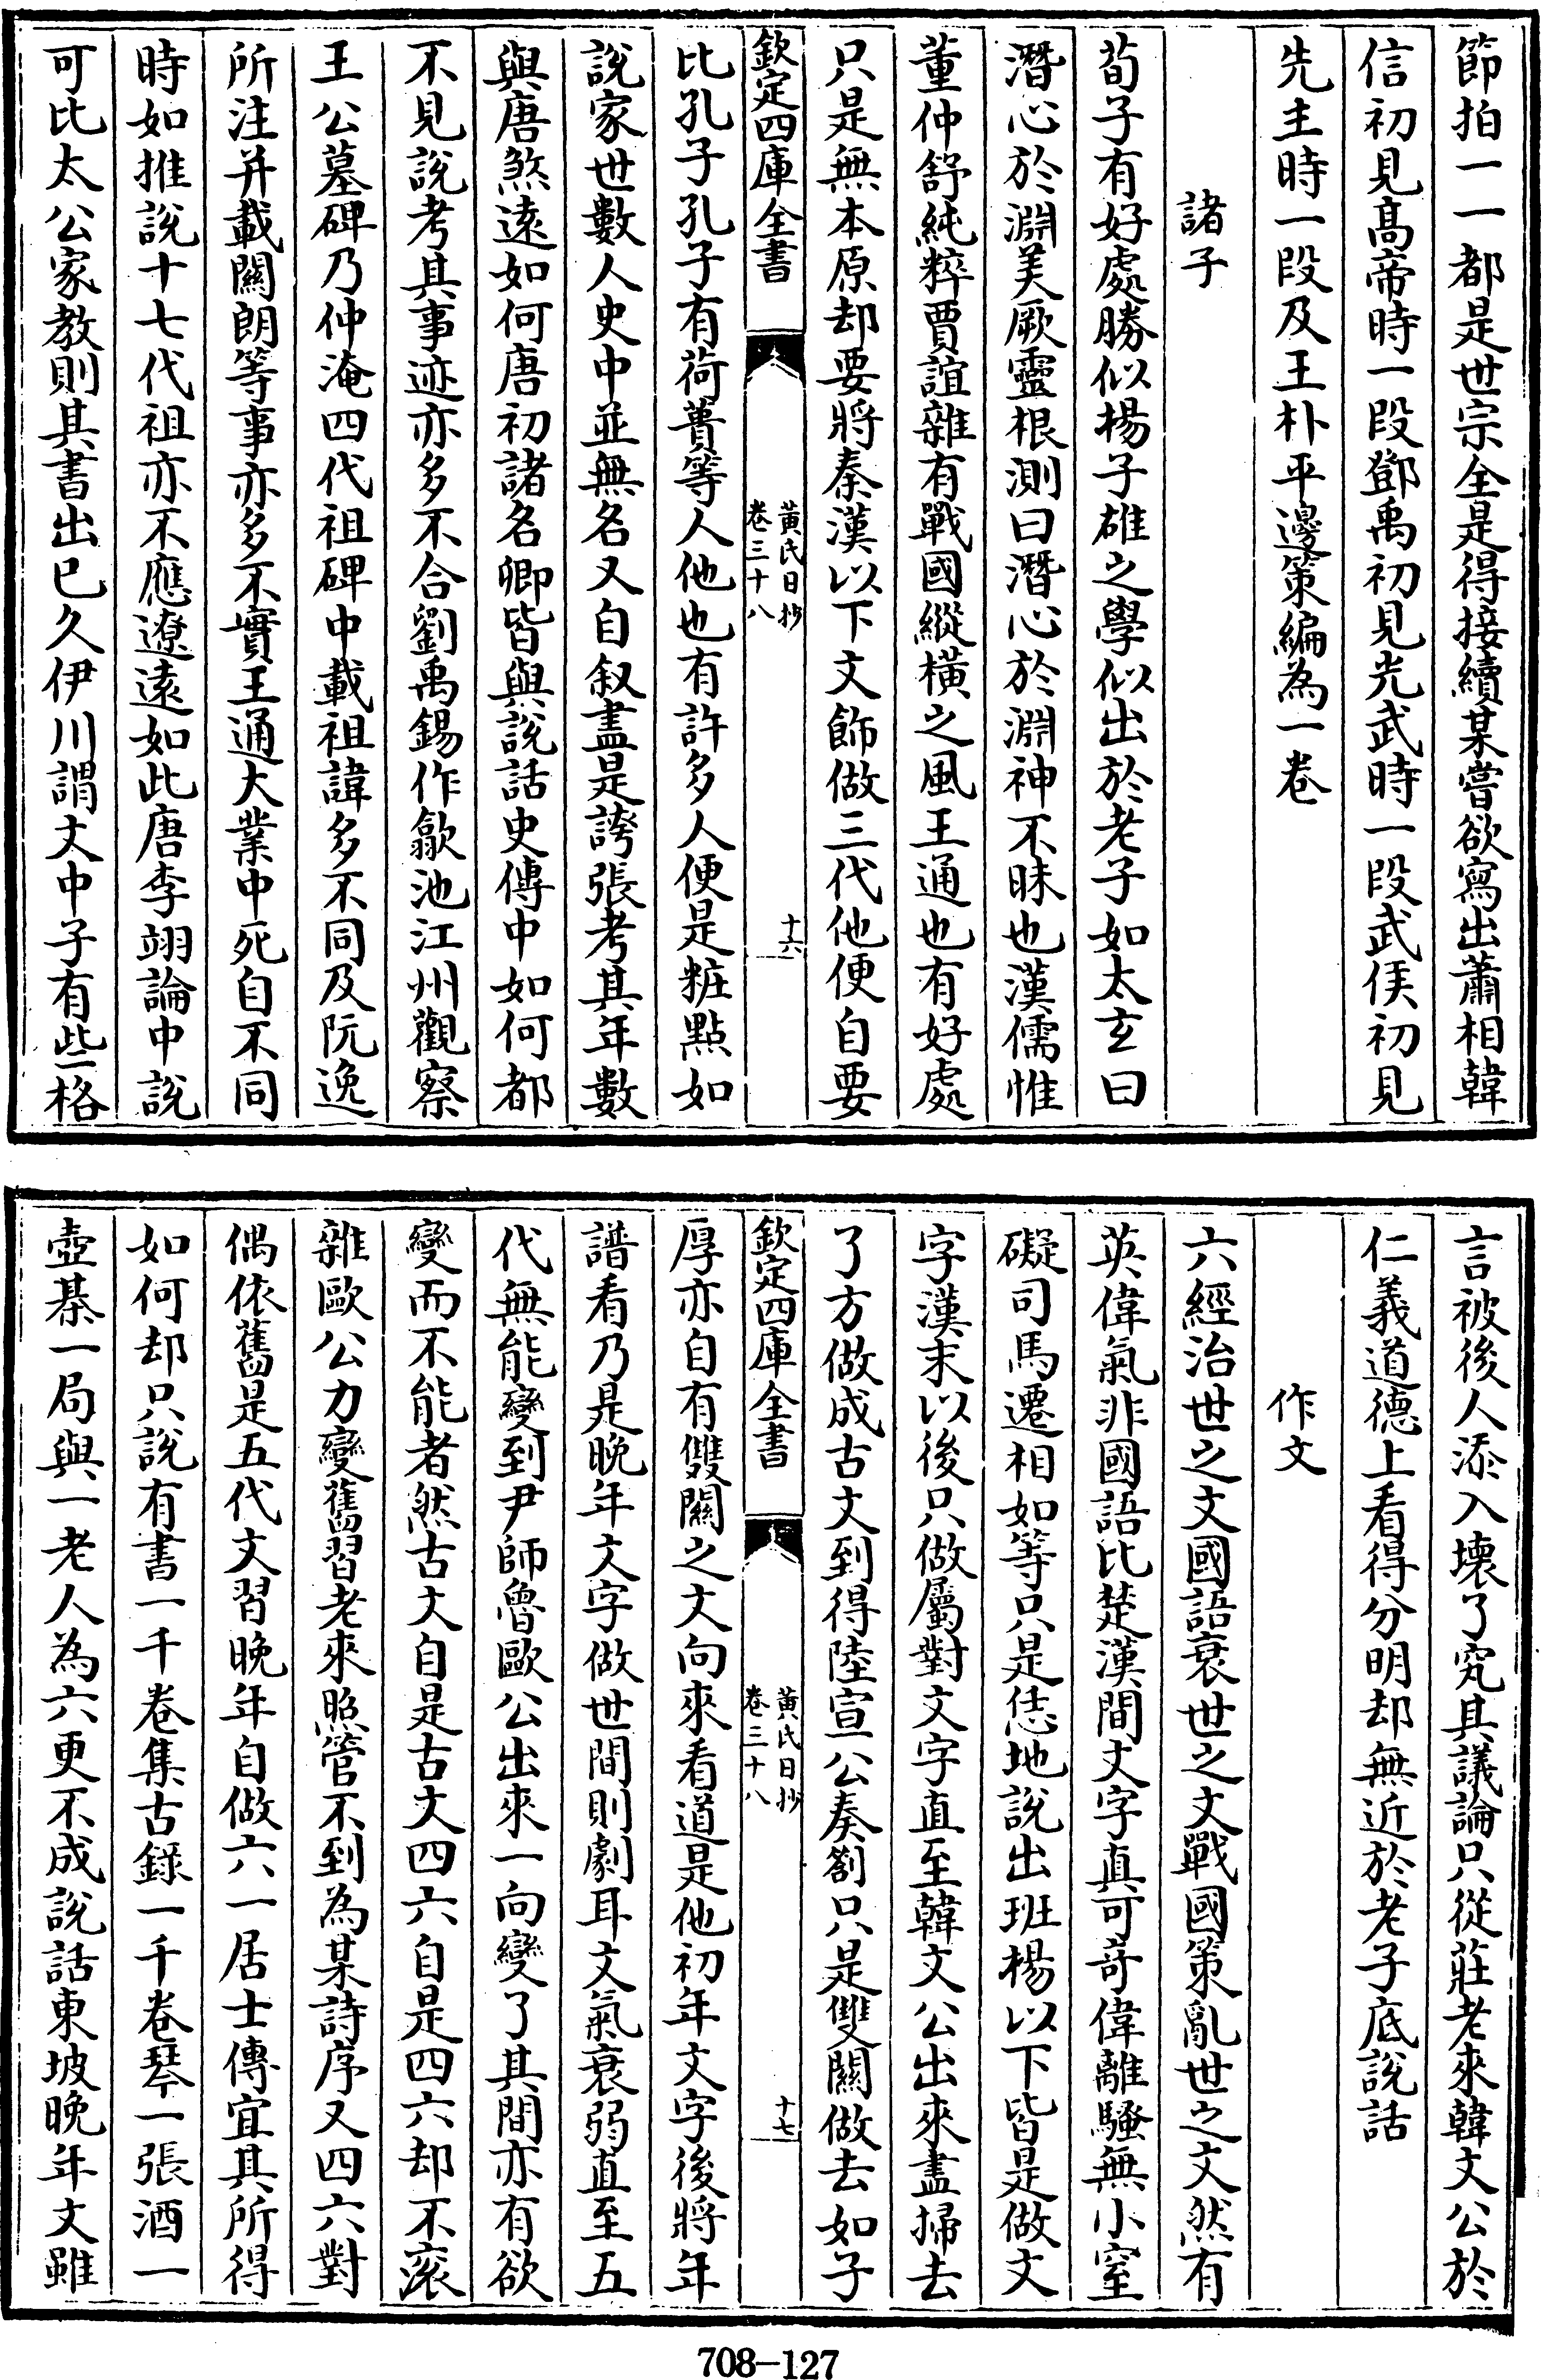 節拍一一都是世宗全是得接續某嘗欲寫出蕭相韓
信初見髙帝時一段鄧禹初見光武時一段武侯初見
先主時一段及王朴平邊策編為一卷
諸子
荀子有好處勝似楊子雄之學似出於老子如太玄曰
潛心於淵美厥靈根測曰潛心於淵神不昧也漢儒惟
董仲舒純粹賈誼雜有戰國縱橫之風王通也有好處
只是無本原却要將秦漢以下文飾做三代他便自要
欽定四庫全書
黄氏日抄
卷三十八
十六
比孔子孔子有荷蕢等人他也有許多人便是粧點如
說家世數人史中並無名又自叙盡是誇張考其年數
與唐煞遠如何唐初諸名卿皆與說話史傳中如何都
不見說考其事迹亦多不合劉禹錫作歙池江州觀察
王公墓碑乃仲淹四代祖碑中載祖諱多不同及阮逸
所注并載關朗等事亦多不實王通大業中死自不同
時如推說十七代祖亦不應遼遠如此唐李翊論中說
可比太公家教則其書出已久伊川謂文中子有些格
言被後人添入壞了究其議論只從莊老來韓文公於
仁義道德上看得分明却無近於老子底說話
作文
六經治世之文國語衰世之文戰國策亂世之文然有
英偉氣非國語比楚漢間文字真可奇偉離騷無小窒
礙司馬遷相如等只是恁地說出班楊以下皆是做文
字漢末以後只做屬對文字直至韓文公出來盡掃去
了方做成古文到得陸宣公奏劄只是雙關做去如子
欽定四庫全書
黄氏日抄
卷三十八
十七
厚亦自有雙關之文向來看道是他初年文字後將年
譜看乃是晚年文字做世間則劇耳文氣衰弱直至五
代無能變到尹師魯歐公出來一向變了其間亦有欲
變而不能者然古文自是古文四六自是四六却不滚
雜歐公力變舊習老來照管不到為某詩序又四六對
偶依舊是五代文習晚年自做六一居士傳宜其所得
如何却只說有書一千卷集古録一千卷琴一張酒一
壺棊一局與一老人為六更不成說話東坡晚年文雖
708-127